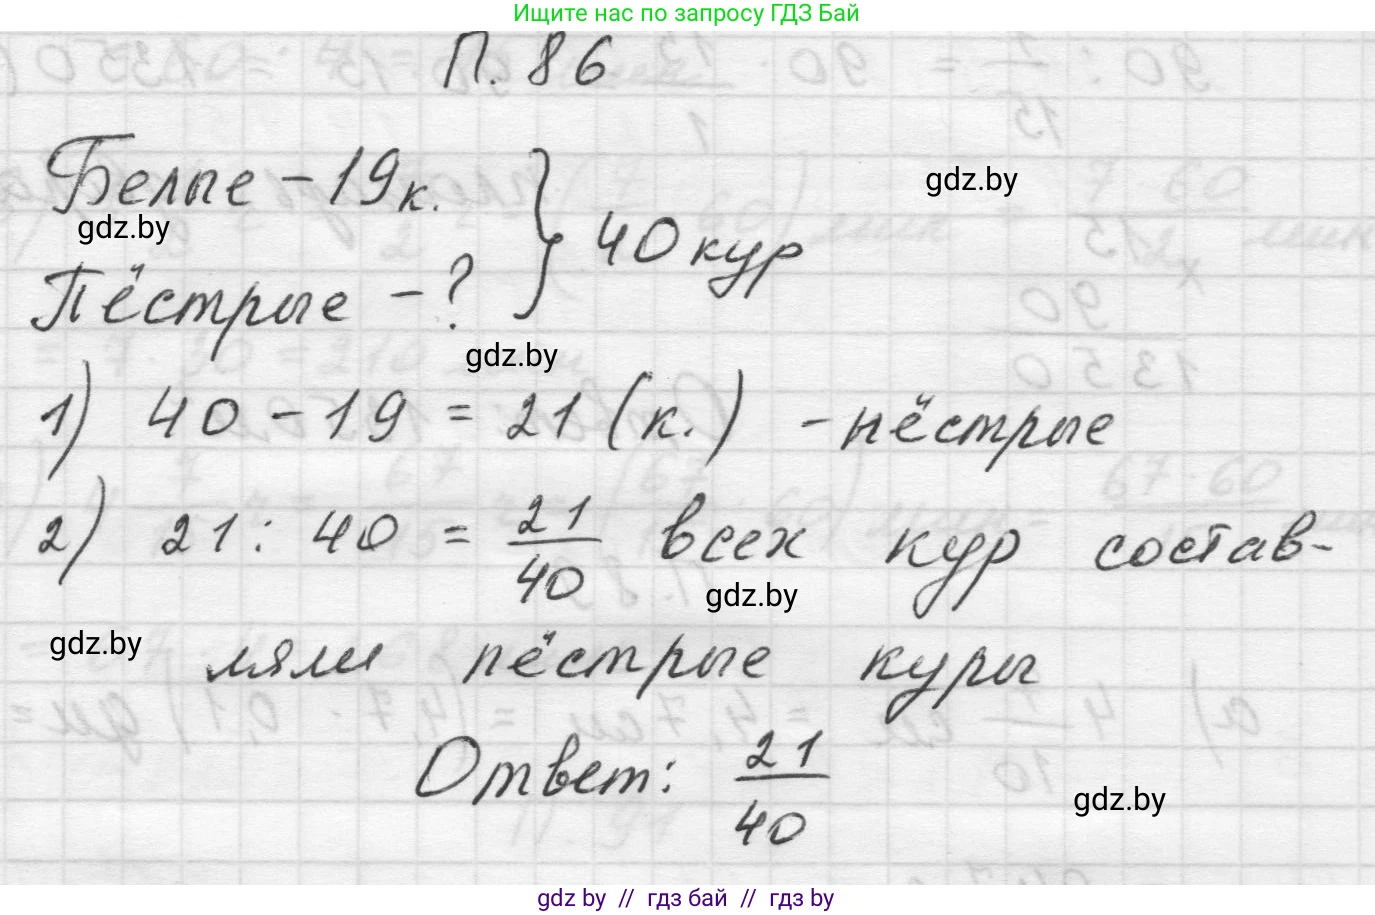 Ищите нас по запросу ГДЗ Бай
П. 86
Белые - 19 к.
gdz.by
gdz.by
Пёстрые - ? } 40 кур
gdz.by
1) 40 - 19 = 21 (к.) - пёстрые
2) 21 : 40 = 21/40 всех кур состав-
gdz.by
gdz.by
ляли пёстрые куры
Ответ: 21/40
gdz.by
gdz by // гдз бай // гдз by